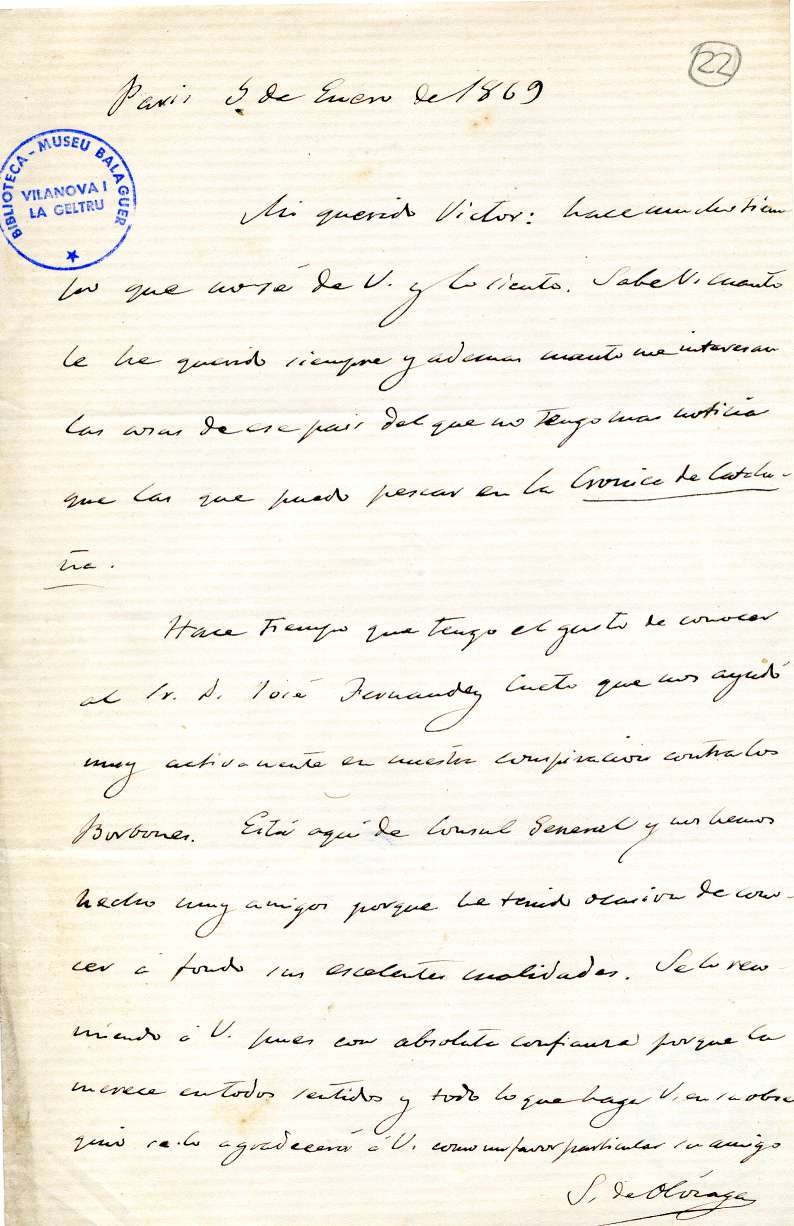 22
Paris 5 de Enero de 1869
BIBLIOTECA - MUSEU BALAGUER
VILANOVA I
LA GELTRU
Mi querido Victor: hace mucho tiem
po que no sé de V. y lo siento. Sabe V. cuanto
le he querido siempre y ademas cuanto me interesan
las cosas de ese pais del que no tengo mas noticia
que las que puedo pescar en la Cronica de Catalu-
ña.
Hace tiempo que tengo el gusto de conocer
al Sr. D. José Fernandez Cueto que nos ayudó
muy activamente en nuestra conspiracion contra los
Borbones. Está aquí de Consul General y nos hemos
hecho muy amigos porque he tenido ocasion de cono-
cer á fondo sus escelentes cualidades. Se lo reco-
miendo á V. pues con absoluta confianza porque la
merece en todos sentidos y todo lo que haga V. en su obse
quio se lo agradecerá á V. como un favor particular su amigo
S. de Olózaga